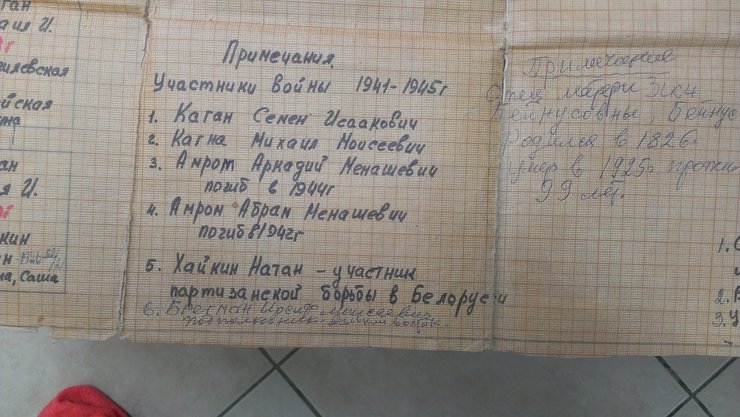 ган
аил И.
рилевская
йская
на
ан
я И.
кин
на, Саша
Примечания
Участники войны 1941-1945г
1. Каган Семен Исаакович
2. Кагна Михаил Моисеевич
3. Амрот Аркадий Менашевич
погиб в 1944г
4. Амрон Абрам Менашевич
погиб в 1942г
5. Хайкин Натан - участник
партизанской борьбы в Белоруссии
6. Брегман Иосиф
Примечание
Отец матери
Бейнусовны, Бейнус
Родился в 1826г
умер в 1925г прожи
99 лет.
1. С
2. В
3. У